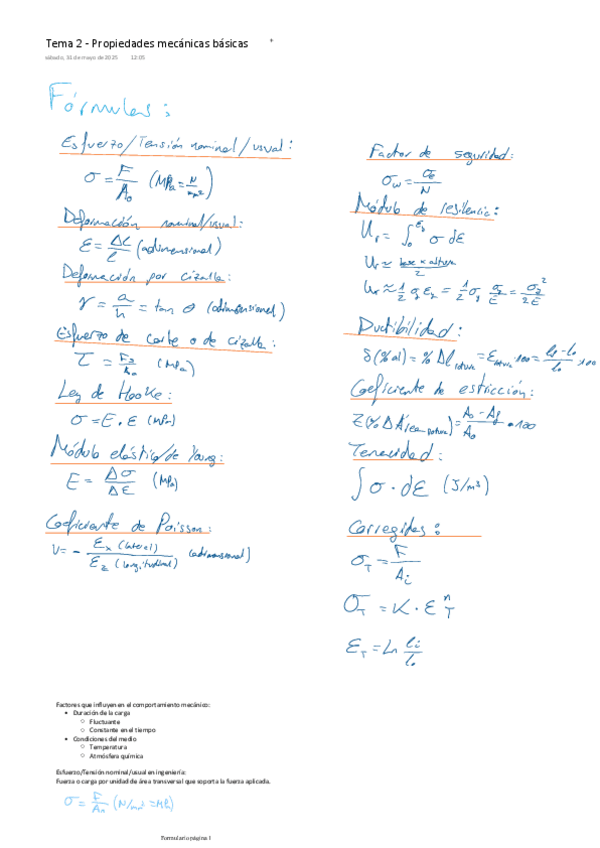 Tema 2 - Propiedades mecánicas básicas
sábado, 31 de mayo de 2025 12:05
Fórmulas:
Esfuerzo/Tensión nominal/usual:
σ = F/A₀ (MPa = N/mm²)
Deformación nominal/usual:
ε = ΔL/l (adimensional)
Deformación por cizalla:
γ = a/h = tan θ (adimensional)
Esfuerzo de corte o de cizalla:
τ = (MPa)
Ley de Hooke:
σ = E · ε (MPa)
Módulo elástico/de Young:
E = Δσ/Δε (MPa)
Coeficiente de Poisson:
ν = - εx (lateral)/εz (longitudinal) (adimensional)
Factor de seguridad:
σw = /N
Módulo de resilencia:
Ur = ∫ σ dε
Ur ≃ base × altura/2
Ur ≃ 1/2
Ductibilidad:
δ(% al) = % Δl rotura = ε rotura · 100 = lf - l₀/l₀ · 100
Coeficiente de estricción:
Z(% Δ Área rotura) = A₀ - Af/A₀ · 100
Tenacidad:
∫ σ · dε (J/m³)
Corregidas:
σT = F/Ai
σT = K · εTⁿ
εT = Ln li/l₀
Factores que influyen en el comportamiento mecánico:
• Duración de la carga
○ Fluctuante
○ Constante en el tiempo
• Condiciones del medio
○ Temperatura
○ Atmósfera química
Esfuerzo/Tensión nominal/usual en ingeniería:
Fuerza o carga por unidad de área transversal que soporta la fuerza aplicada.
σ = F/A₀ (N/mm² = MPa)
Formulario página 1